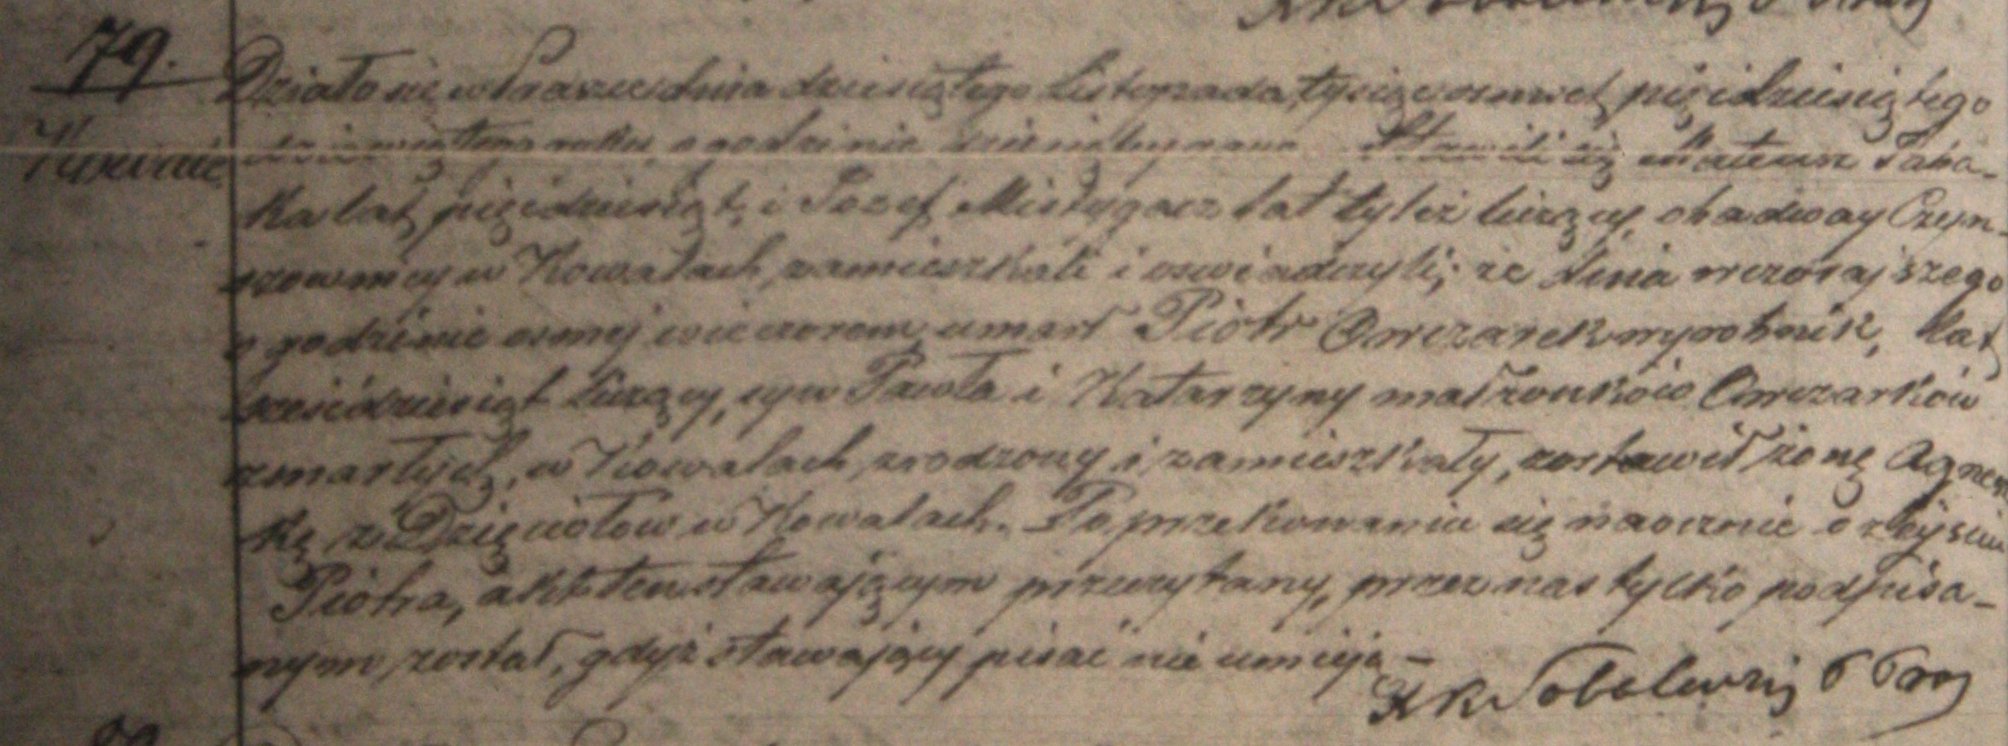 79.
Działo się w Praszce dnia dziesiątego Listopada, tysiąc ośmset pięćdziesiątego
Kowale dziewiątego roku, o godzinie dziesiątej rano Stawili się Mateusz Taba-
ka lat pięćdziesiąt, i Józef Mistygacz lat tyleż liczący, obadway Czyn-
szownicy w Kowalach zamieszkali i oświadczyli; że dnia wczorajszego
o godzinie osmej wieczorem umarł Piotr Owczarek wyrobnik, lat
sześćdziesiąt liczący, syn Pawła i Katarzyny małżonków Owczarków
zmarłych, w Kowalach urodzony i zamieszkały, zostawił żonę Agniesz
kę z Dzięciołów w Kowalach. Po przekonaniu się naocznie o zejściu
Piotra, akt ten stawającym przeczytany, przez nas tylko podpisa-
nym został, gdyż stawający pisać nie umieją –
X K Sobolewski